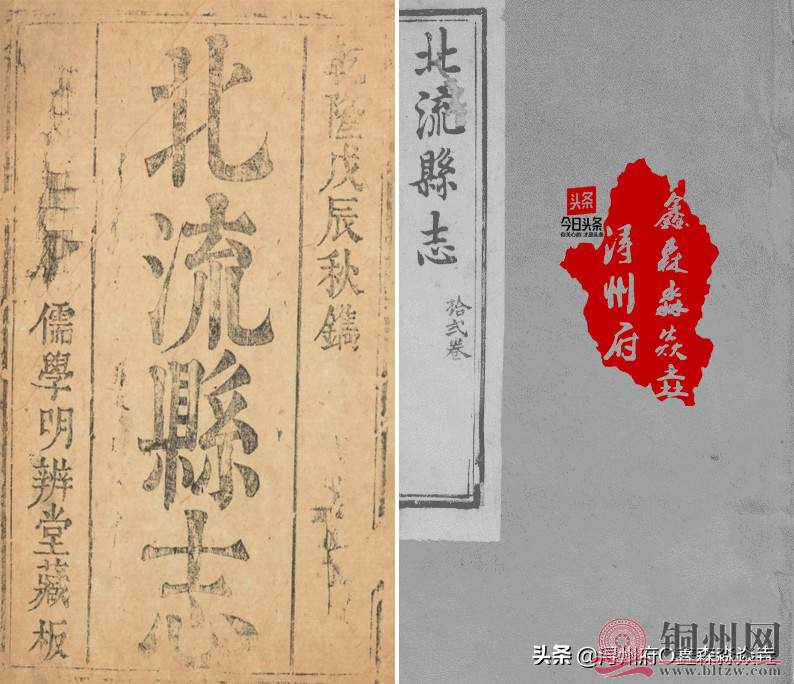 乾隆戊辰秋鐫
北流縣志
儒學明辨堂藏板
北流縣志
拾弍卷
头条
今日头条
你关心的 才是头条
鑫森淼焱垚
浔州府
铜州网
头条 @浔州府O鑫森淼焱垚
www.bltzw.com